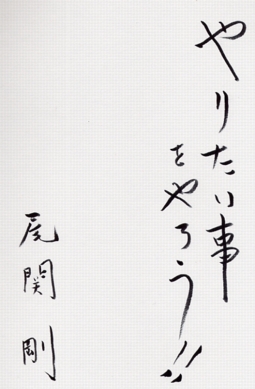 やりたい事
をやろう!!
尾関 剛